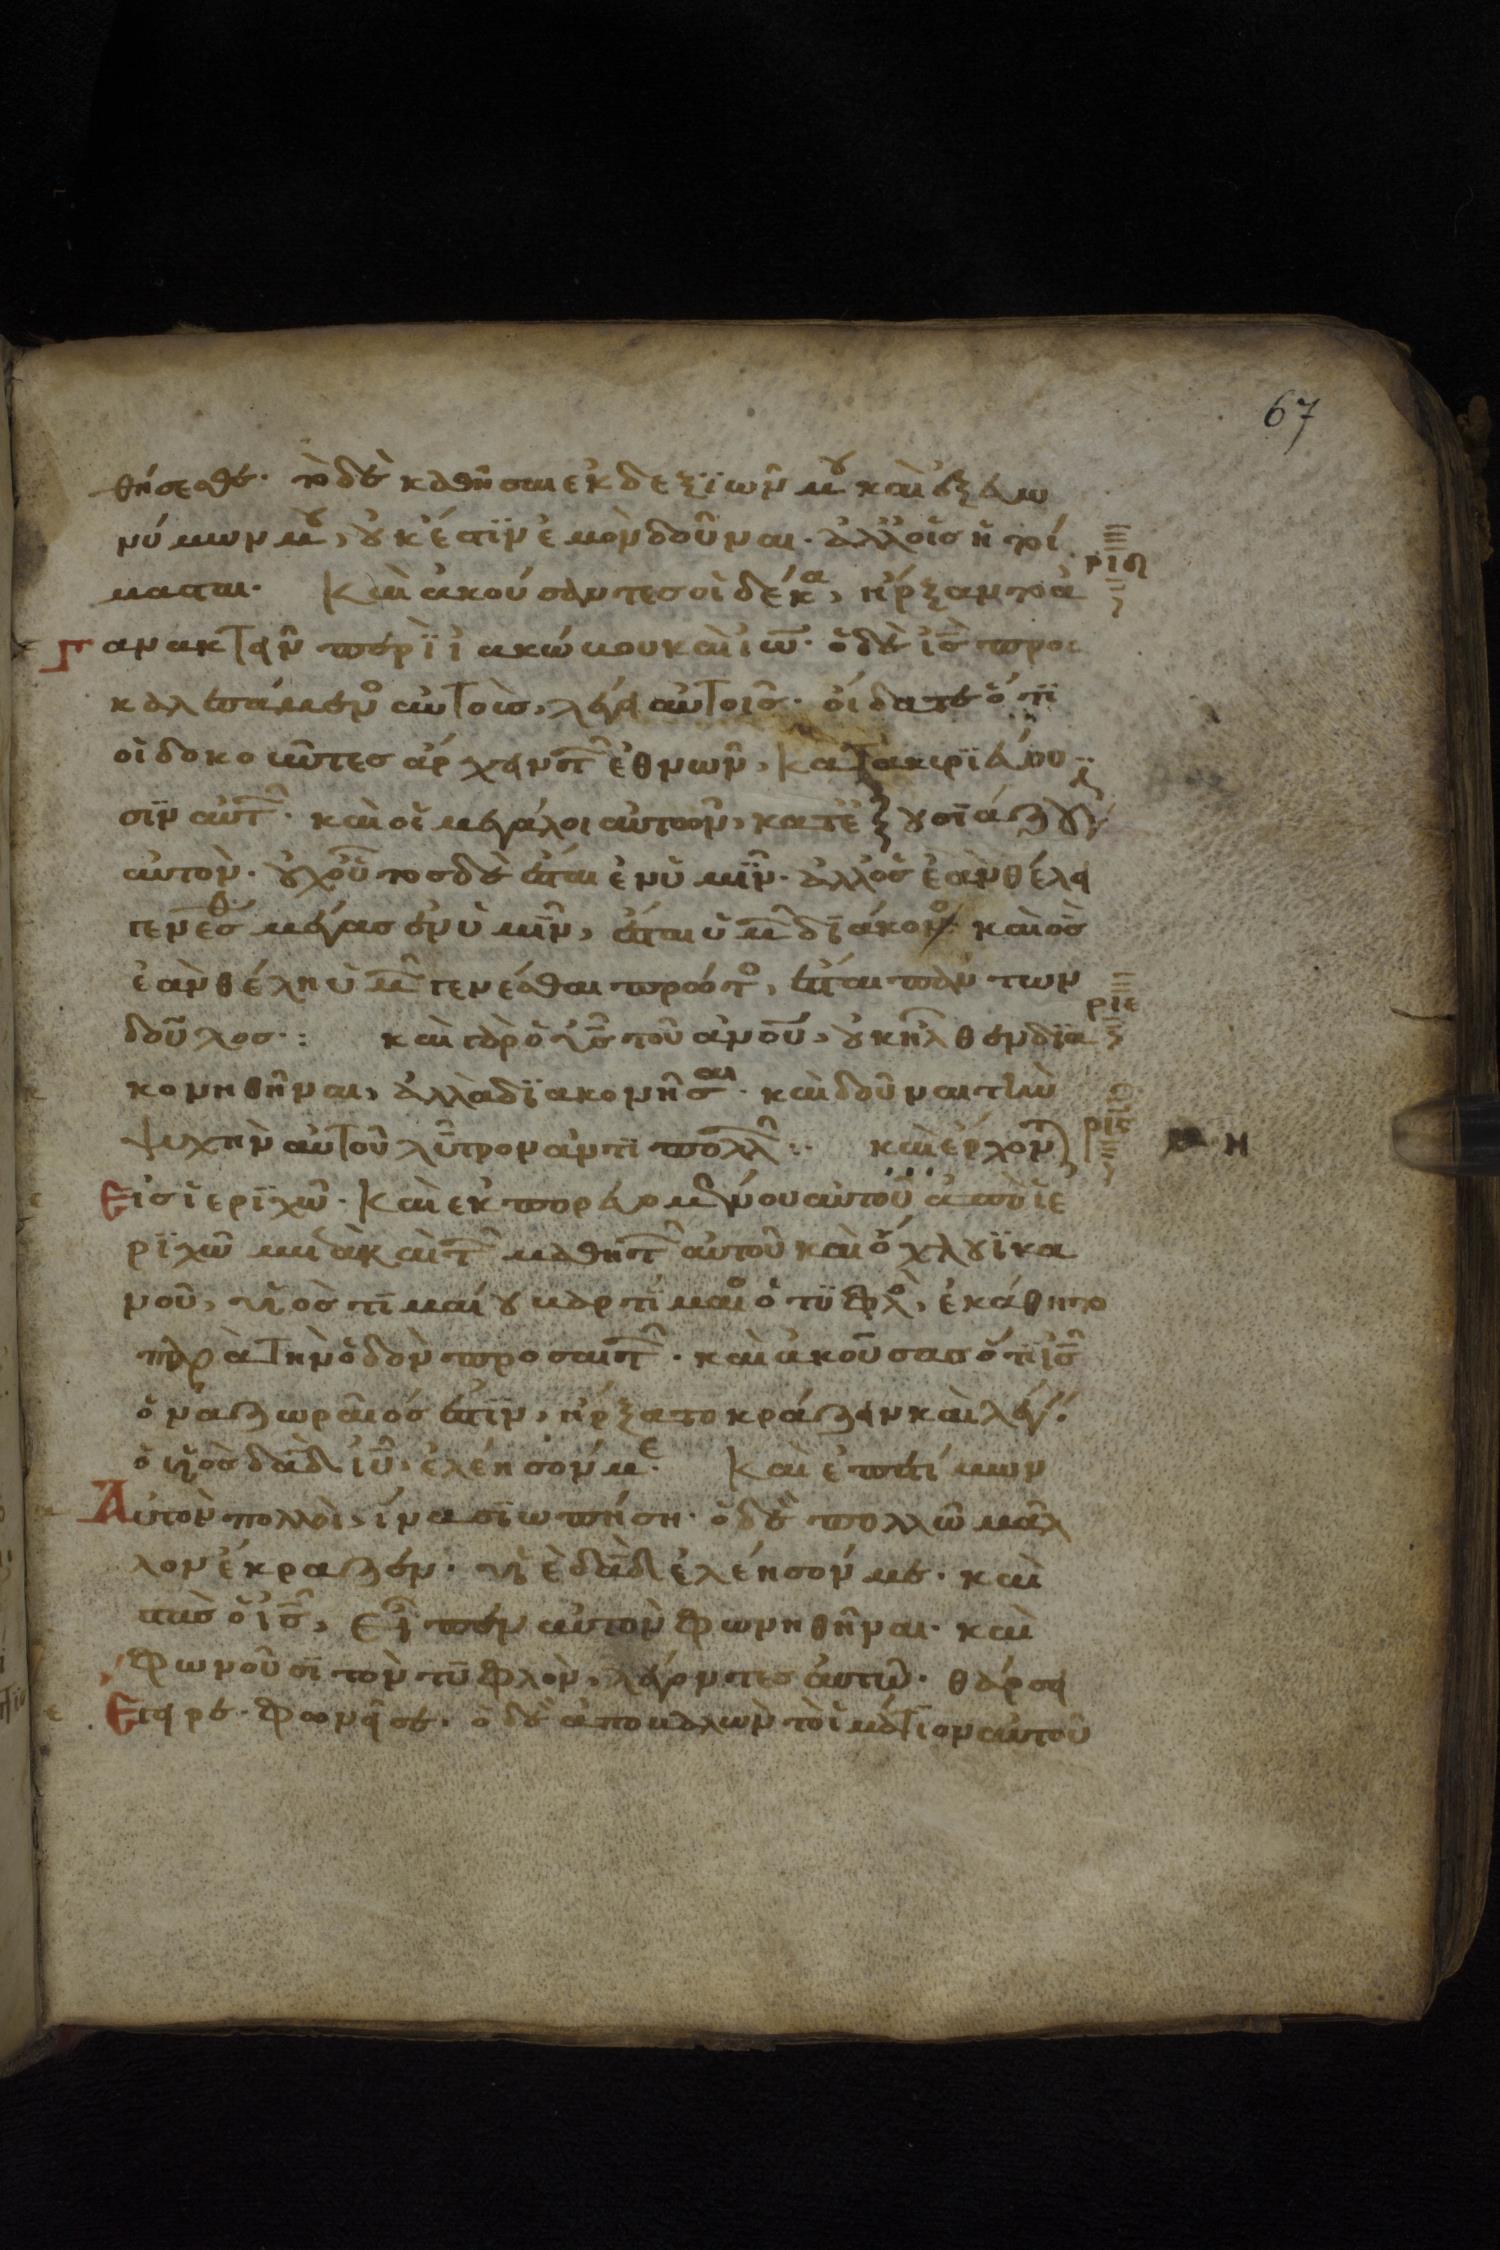 67
θήσεσθε· τὸ δὲ καθῆσαι ἐκ δεξϊῶν μου καὶ ἐξ εὐω
νύμων μου, οὐκ έστϊν ἐμὸν δοῦναι· ἀλλ' οἷς ἡτοί
μασται· Καὶ ἀκούσαντες οἱ δέκα, ήρξαντο ἀ
γανακτεῖν περὶ ϊακώβου καὶ ἰω̅· ὁ δὲ ι̅ς̅ προσ
καλεσάμενος αὐτοὺς, λέγει αὐτοῖς· οίδατε ὅτϊ
οἱ δοκοῦντες άρχειν τ῀ ἐθνῶν, κατακυρϊεύου
σϊν αὐτ῀· καὶ οἱ μεγάλοι αὐτῶν, κατεξουσϊάζου
αὐτὸν· οὐχ οὕτος δὲ ἔσται ἐν ὑμϊν· ἀλλ' ὃς ἐὰν θέλει
γενέσθ μέγας ἐν ὑμϊν, ἔσται ὑμ῀ δϊάκονος· καὶ ὃς
ἐὰν θέλη ὑμ῀ γενέσθαι πρῶτος, ἔσται πάντων
δοῦλος·: καὶ γὰρ ὁ υ̅ς̅ τοῦ α̅ν̅ο̅υ̅, οὐκ ῆλθεν δϊα
κονηθῆναι, ἀλλὰ δϊακονῆσαι· καὶ δοῦναι τὴν
ψυχὴν αὐτοῦ λύτρον ἀντϊ πολλ῀:· καὶ έρχοντ
Εἰς ἱερϊχὼ· Καὶ ἐκπορευομένου αὐτοῦ ἀπὸ ἱε
ρϊχὼ καὶ τ῀ μαθητ῀ αὐτοῦ καὶ όχλου ϊκα
νοῦ, υἱὸς τϊμαίου βαρτϊμαῖος ὁ τϋφλὸς, ἐκάθητο
παρὰ τὴν ὁδὸν προσαιτ῀· καὶ ἀκούσας ὅτϊ ι̅ς̅
ὁ ναζωραῖός ἐστϊν, ήρξατο κράζειν καὶ λέγ·
ὁ υἱὸς δα̅δ̅ ι̅υ̅, ἐλέησόν με· Καὶ ἐπετίμων
Αὐτὸν πολλοὶ, ίνα σϊωπήση· ὁ δὲ πολλῶ μᾶλ
λον έκραζεν· υἱὲ δα̅δ̅ ἐλέησόν με· καὶ
στὰς ὁ ι̅ς̅, εἶπεν αὐτὸν φωνηθῆναι· καὶ
φωνοῦσϊ τὸν τϋφλὸν, λέγοντες αὐτῶ· θάρσει
Εγειρε· φωνεῖ σε· ὁ δὲ ἀποβαλὼν τὸ ἱμάτιον αὐτοῦ
ριδ
ριε
ριϛ